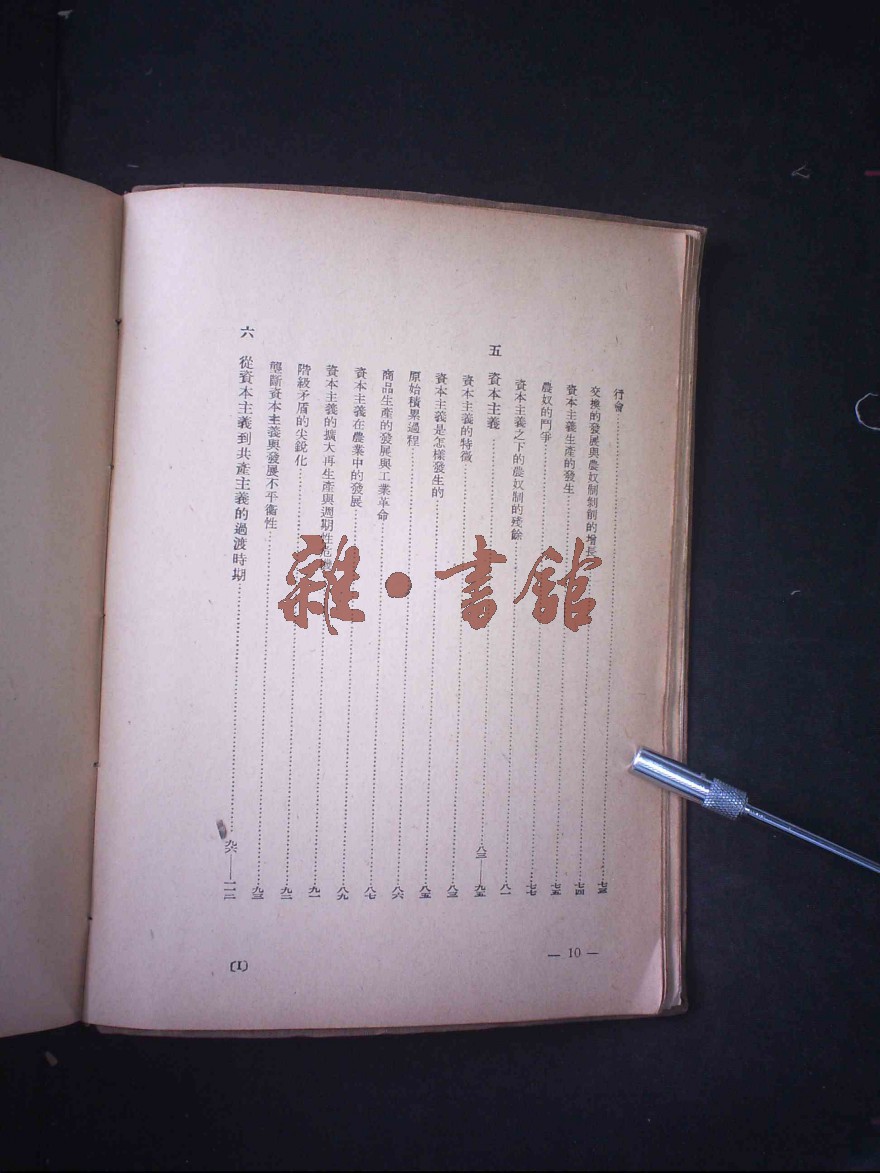 行會……七三
交換的發展與農奴制剝削的增長……七四
資本主義生產的發生……七五
農奴的鬥爭……七七
資本主義之下的農奴制的殘餘……八一
五 資本主義……八三——九五
資本主義的特徵……八三
資本主義是怎樣發生的……八五
原始積累過程……八六
商品生產的發展與工業革命……八七
資本主義在農業中的發展……八九
資本主義的擴大再生產與週期性危機……九一
階級矛盾的尖銳化……九二
壟斷資本主義與發展不平衡性……九三
六 從資本主義到共產主義的過渡時期……九六——一一三
— 10 —
(I)
雜·書館